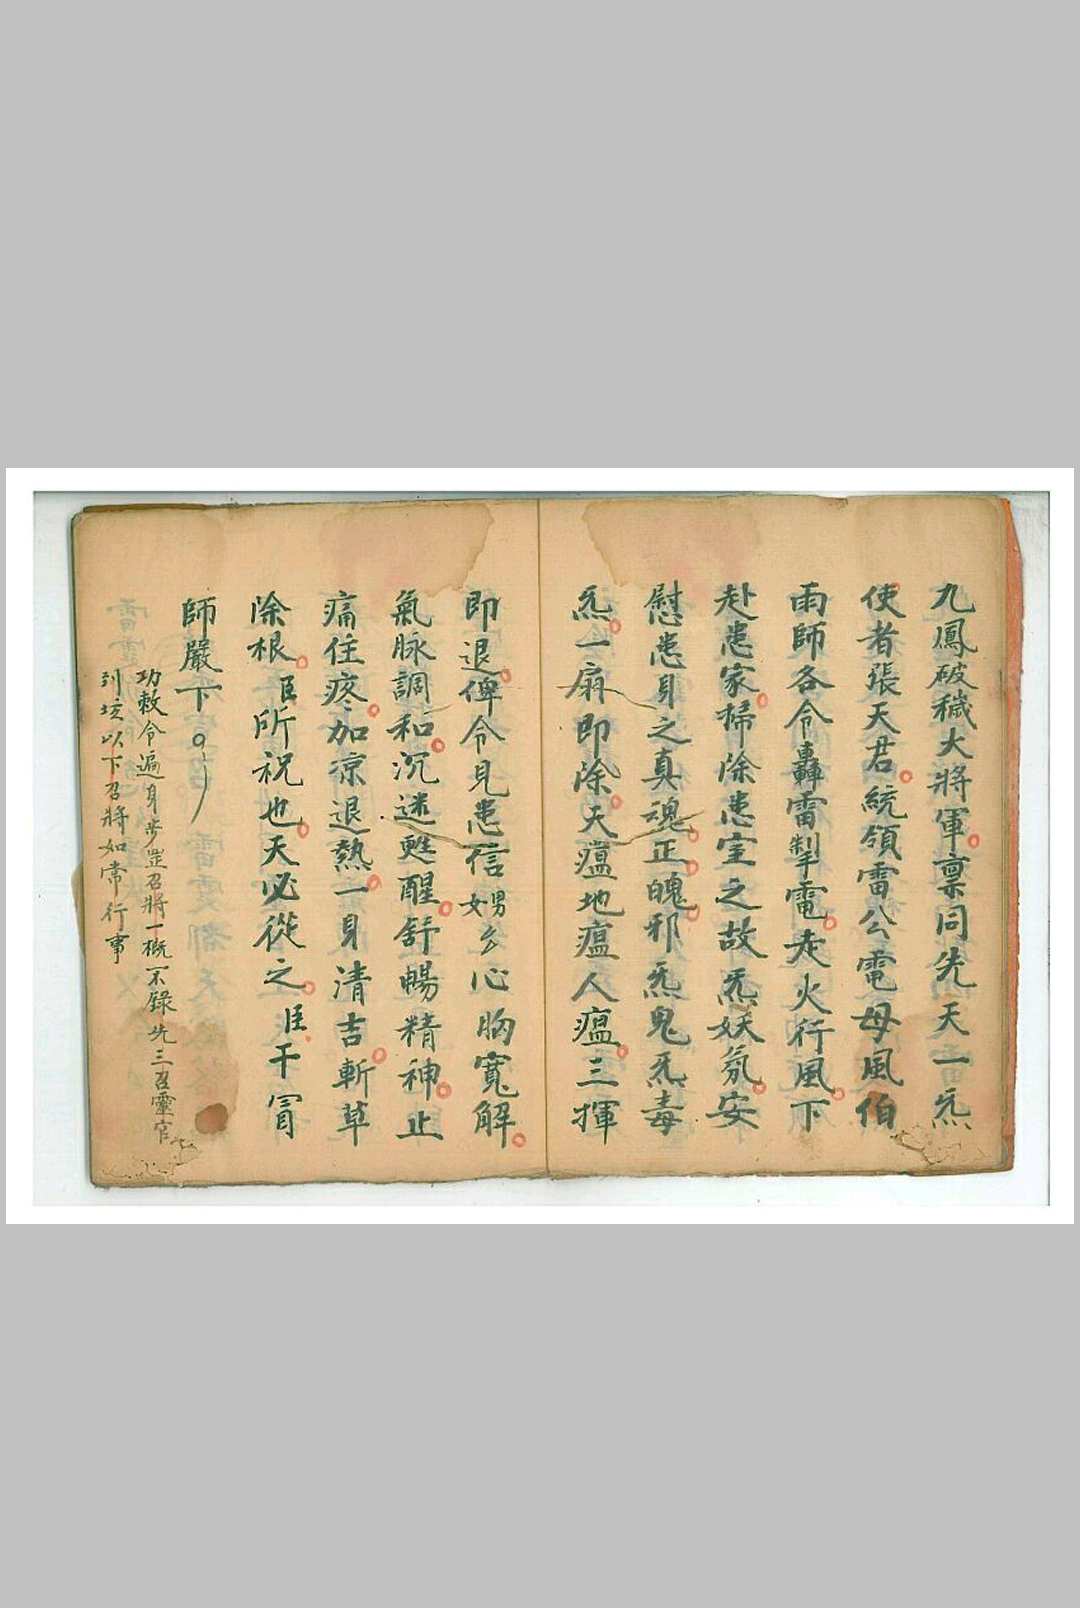 九鳳破穢大將軍稟同先天一炁
使者張天君統領雷公電母風伯
雨師各令轟雷掣電走火行風下
赴患家掃除患室之故炁妖氛安
慰患身之真魂正魄邪炁鬼炁毒
炁一扇即除天瘟地瘟人瘟三揮
即退俾令見患信男女ム心胸寬解
氣脉調和沉迷甦醒舒暢精神止
痛住疼加凉退熱一身清吉斬草
除根臣所祝也天必從之臣干冒
師嚴下
功敕令遍身步罡召將一概不錄先三召靈官
到垓以下召將如常行事